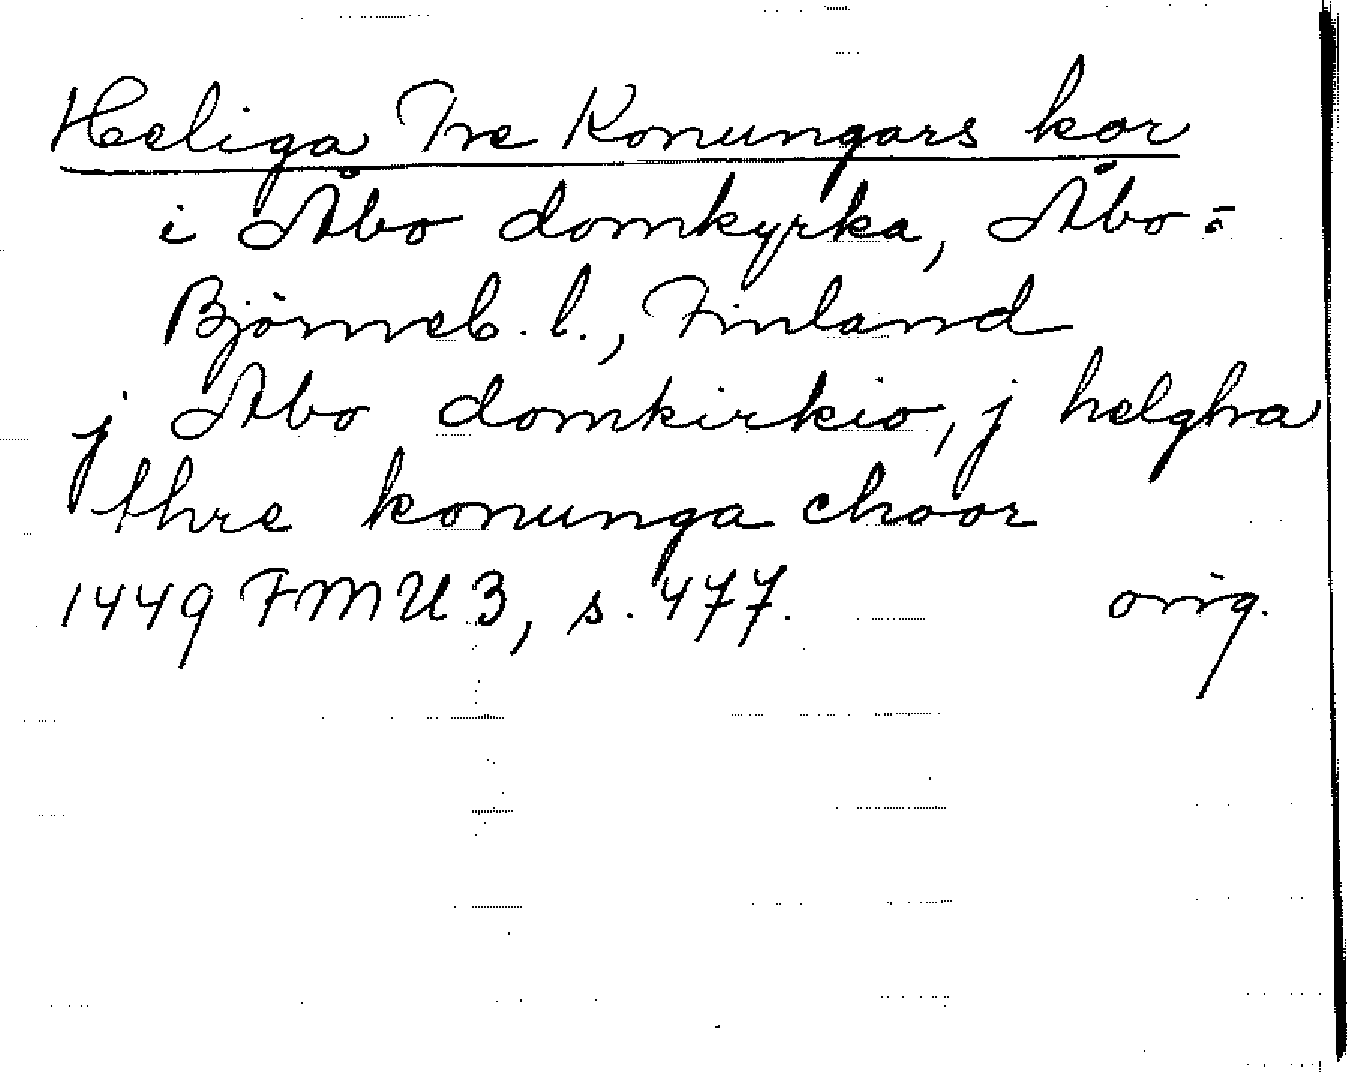 Heliga Tre Konungars kor
i Åbo domkyrka, Åbo-
Björneb. l., Finland
j Abo domkirkio, j helgha
thre konunga choor
1449 FMU 3, s. 477. orig.